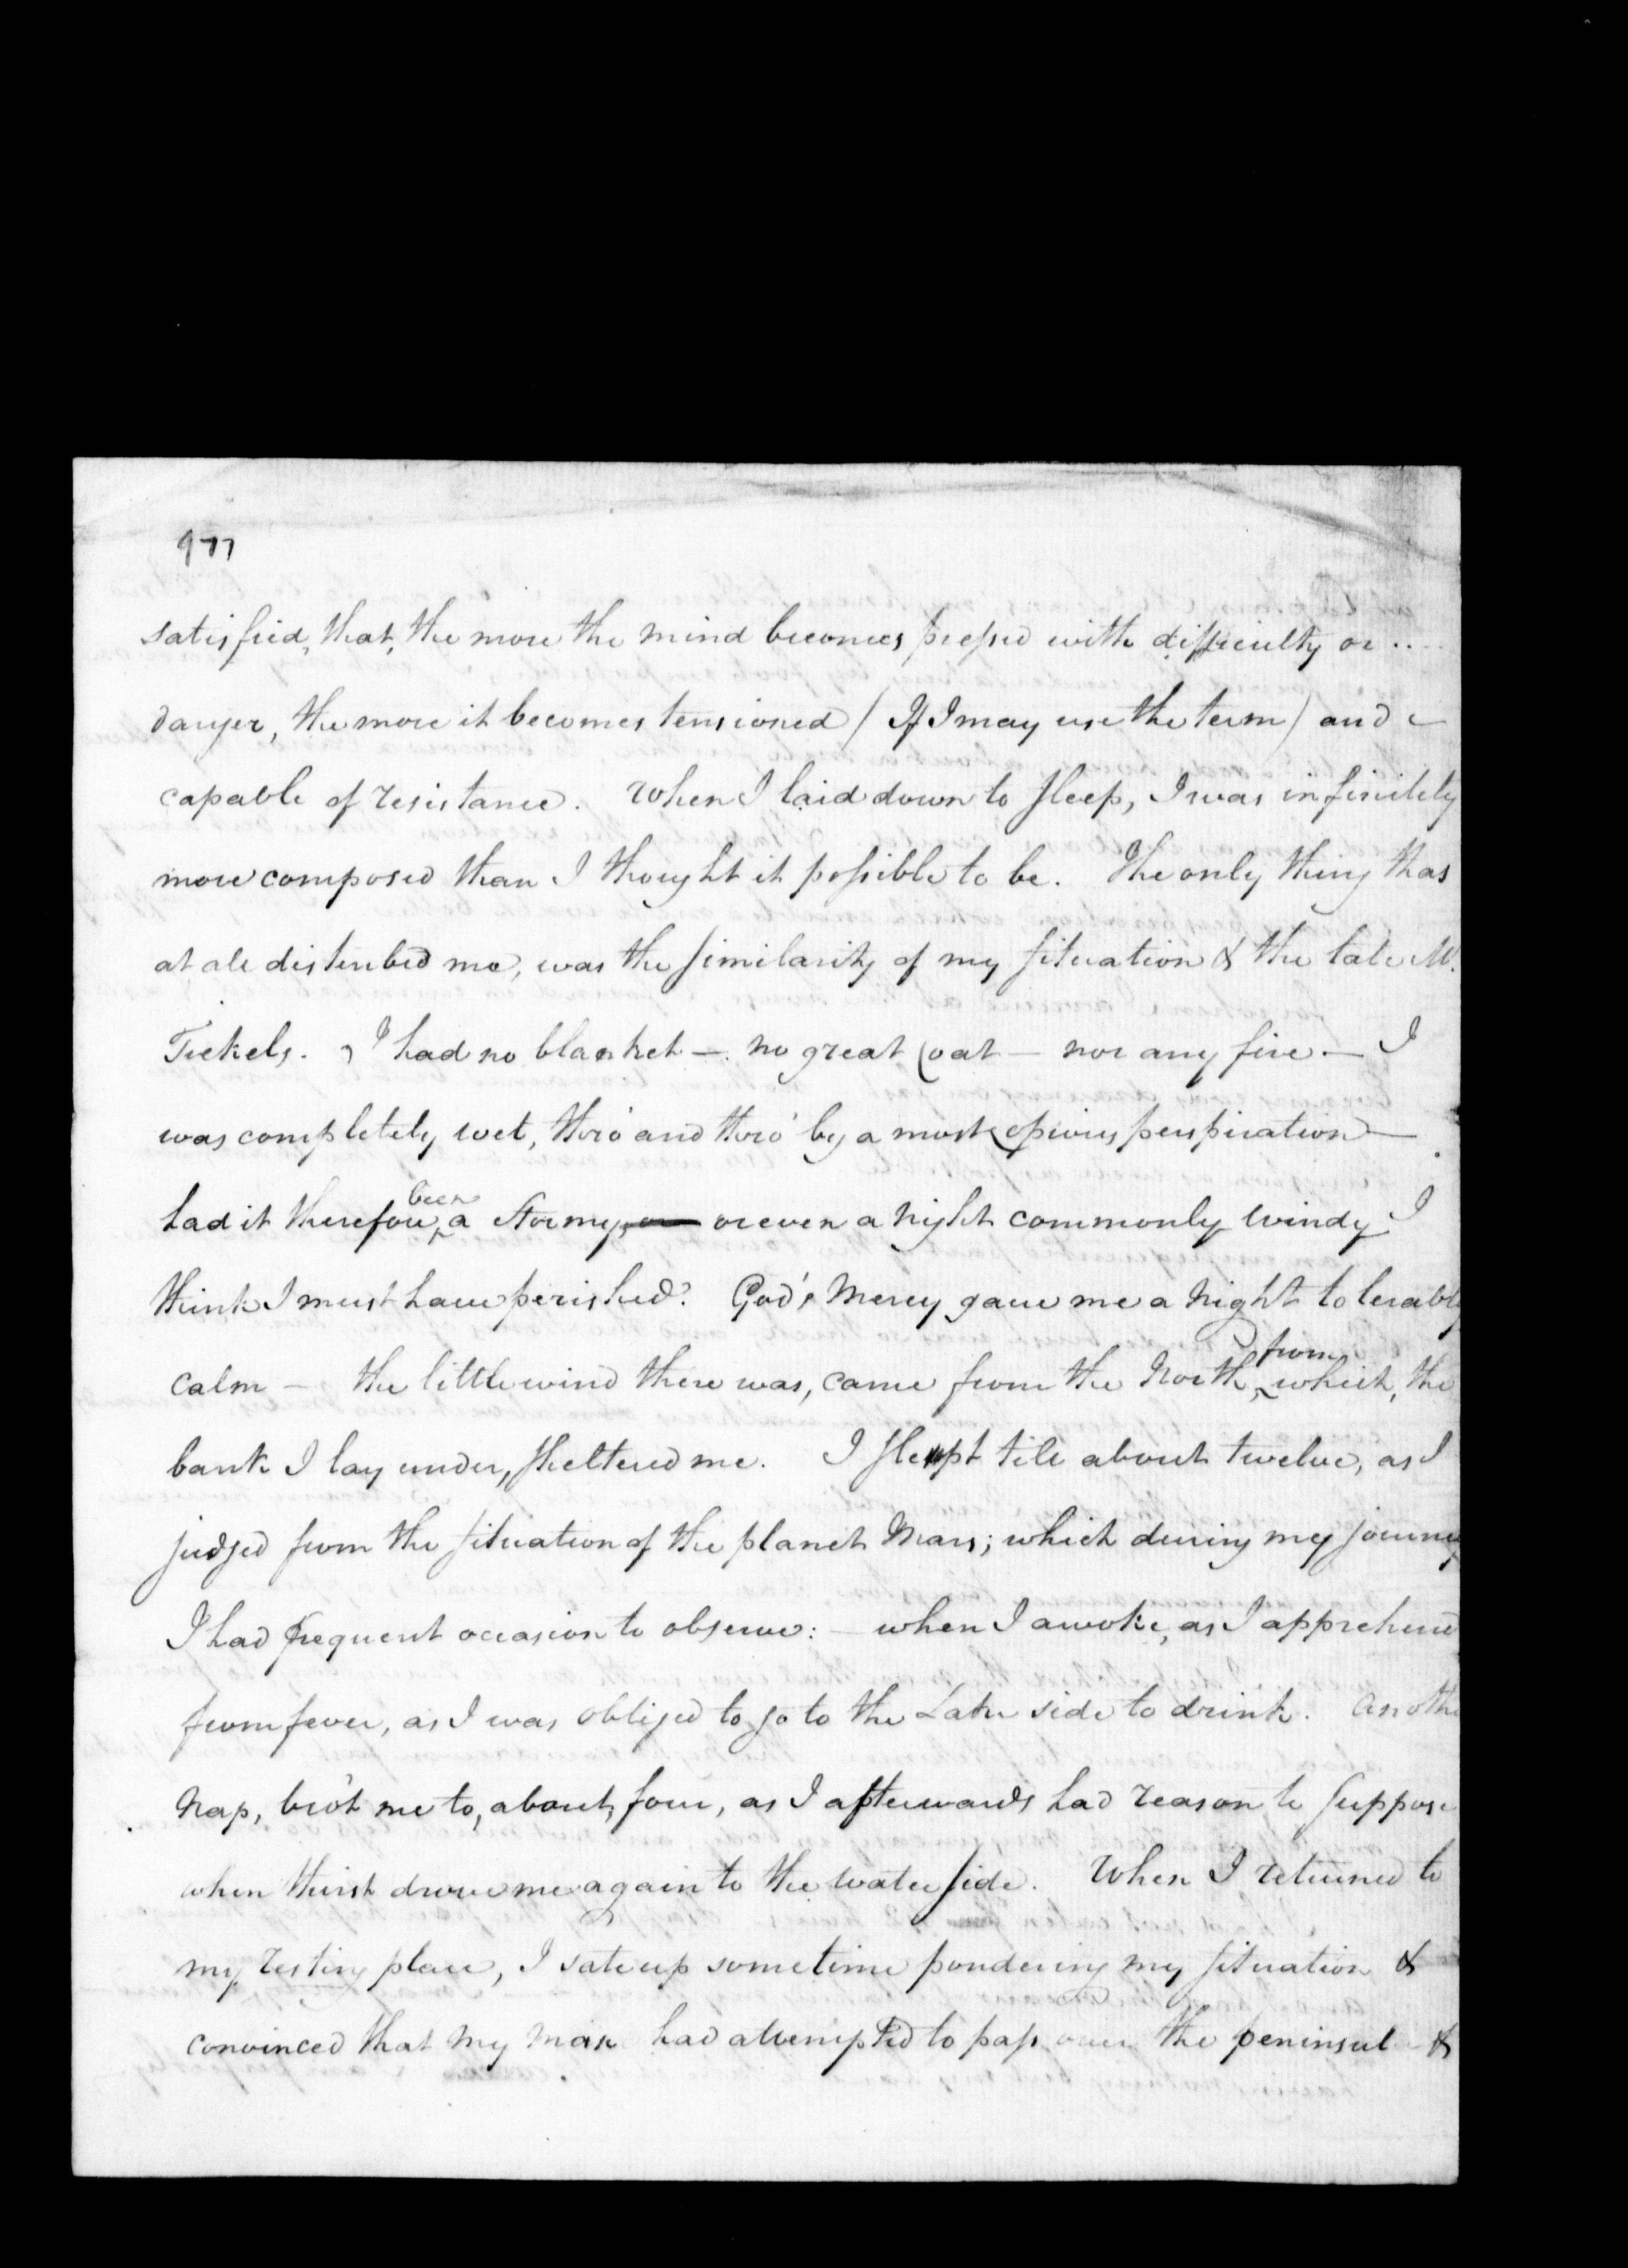 977
satisfied, that, the more the mind becomes pressed with difficulty or ..
danger, the more it becomes tensioned / If I may use the term / and
capable of resistance. When I laid down to sleep, I was infinitely
more composed than I thought it possible to be. The only thing that
at all disturbed me, was the similarity of my situation & the late Mr.
Tickels. I had no blanket — no great Coat — nor any fire — I
was completely wet, thro' and thro' by a most copious perspiration —
had it therefore, been a stormy, or or even a night commonly windy I
think I must have perished. God's Mercy gave me a Night tolerably
calm — the little wind there was, came from the North, from which, the
bank I lay under, sheltered me. I slept till about twelve, as I
judged from the situation of the planet Mars; which during my journey
I had frequent occasion to observe: — when I awoke, as I apprehend
from fever, as I was obliged to go to the Lake side to drink. Anothe
Nap, bro't me to, about, four, as I afterwards had reason to suppose
when thirst drove me again to the water side. When I returned to
my resting place, I sate up sometime pondering my situation &
convinced that my man had attempted to pass over the peninsul &